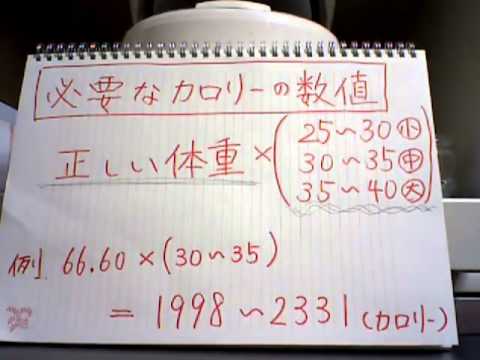 必要なカロリーの数値
正しい体重×(25〜30㊙小
30〜35㊥
35〜40大)
例 66.60×(30〜35)
=1998〜2331(カロリー)